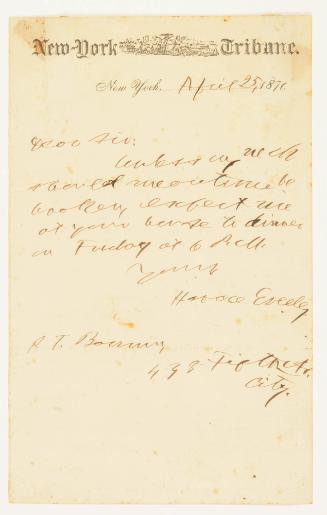 New-York Tribune.
New York, April 25, 1871.
Dear Sir:
Unless my neck
should meantime be
broken, expect me
at your house to dinner
on Friday at 6 P.M.
Yours,
Horace Greeley
433 Fifth Av.
City.